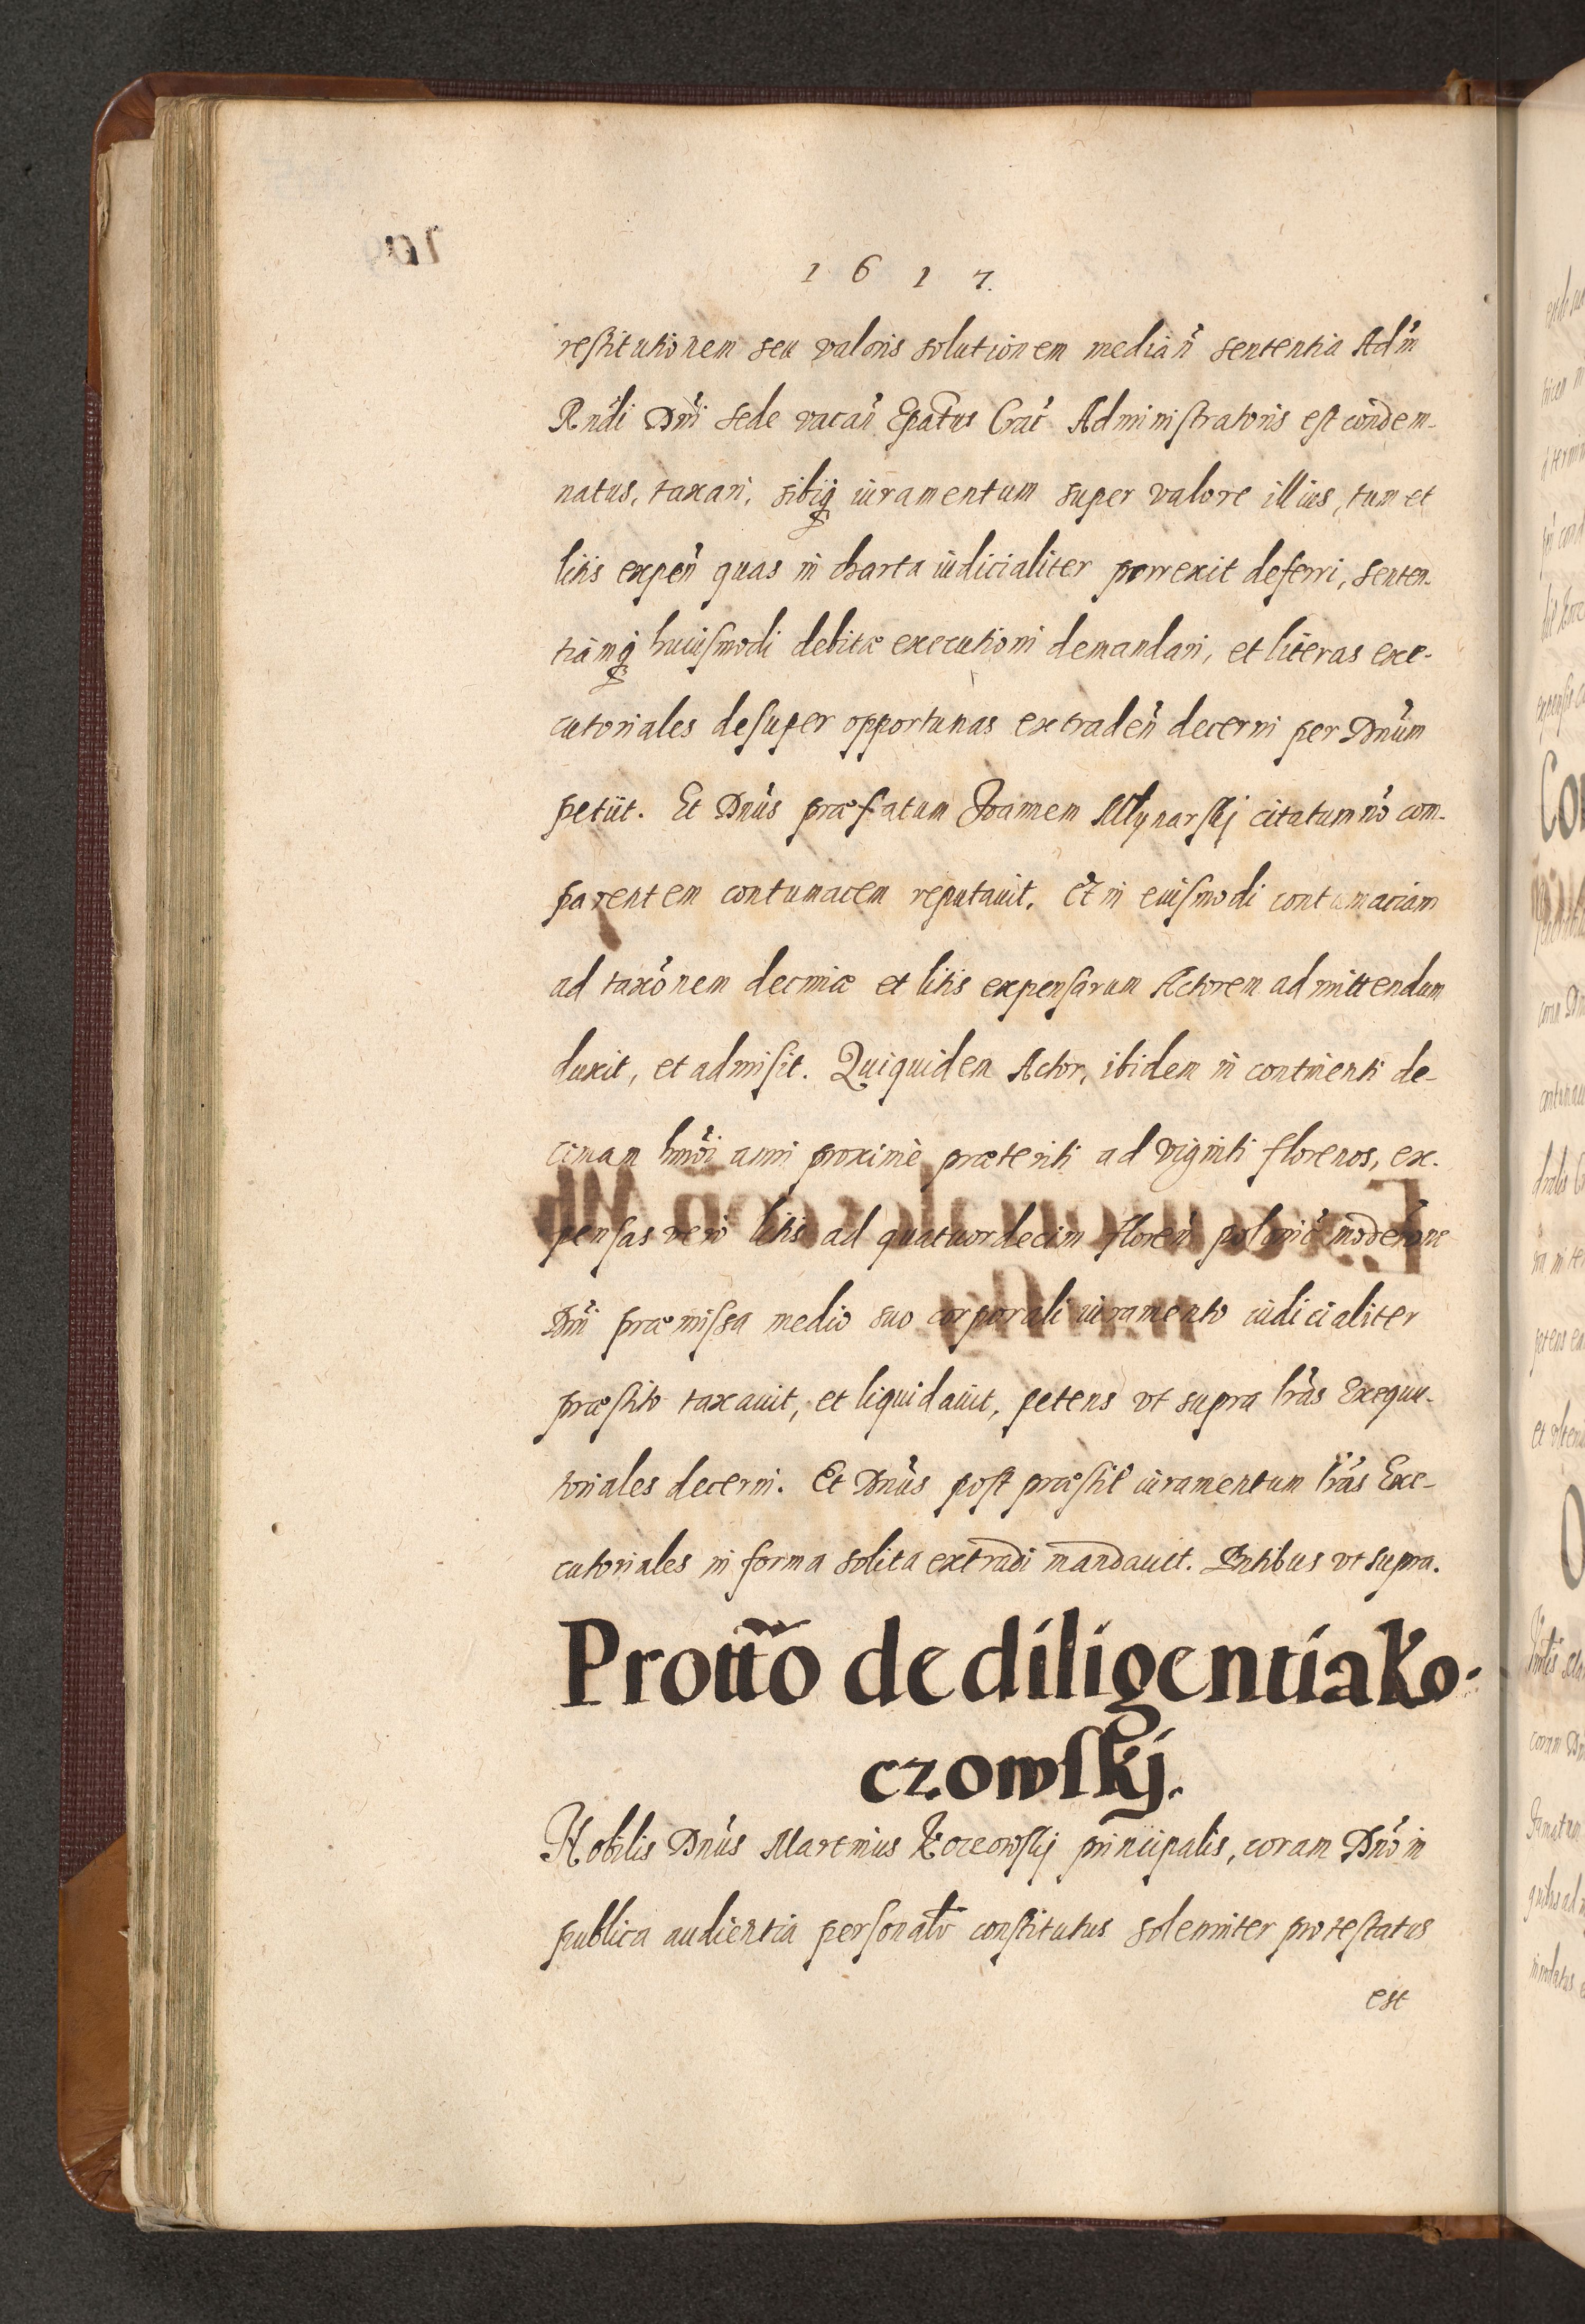 1 6 1 7.
restitutionem seu valoris solutionem median̄ sententia Adm̄
Rndi Dni sede vacan̄ Epatus Crac̄ Administratoris est condem-
natus, taxari, sibiq̄ iuramentum super valore illius, tum et
litis expen̄ quas in charta iudicialiter porrexit deferri, senten-
tiamq̄ huiusmodi debitæ executioni demandari, et literas exe-
cutoriales desuper opportunas extraden̄ decerni per Dnūm
petiit. Et Dnūs præfatum Joannem Młynarskj citatum nō com-
parentem contumacem reputauit. Et in euismodi contumaciam
ad taxōnem decimæ et litis expensarum Actorem admittendum
duxit, et admisit. Quiquidem Actor, ibidem in continenti de-
cimam hmōi anni proximè præteriti ad viginti florenos, ex-
pensas verò litis ad quatuordecim floren̄ polonic̄ moderōne
Dnī præmissa medio suo corporali iuramento iudicialiter
præstito taxauit, et liquidauit, petens vt supra lrās Exequu-
toriales decerni. Et Dnūs post præstit̄ iuramentum lrās Exe-
cutoriales in forma solita extradi mandauit. Pntibus vt supra.
Prottō de diligentia Ko-
czowskj.
Nobilis Dnūs Martinus Koczowskj principalis, coram Dnō in
publica audientia personalr̄ constitutus solenniter protestatus
est